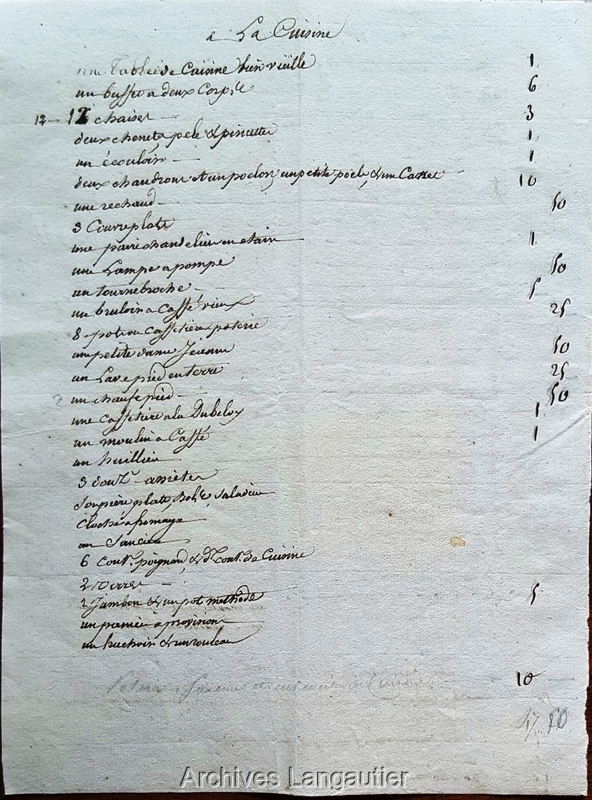 a La Cuisine
une Table de Cuisine bien viëille 1
un buffet a deux Corps 6
12 - 12 chaises 3
deux chenets, pele & pincettes 1
un écouloir 1
deux chaudrons et un poelon, un petite poële, & un Casset 10
une rechaud 50
3 Couvreplats
une paire chandelier en étain 1
une Lampe a pompe 50
un tournebroche 5
un bruloir a Caffé vieux 25
8 pots ou Caffetiere poterie
un petite dame Jeanne 50
un Lave pied en terre 25
un chaufe pied 50
une Caffetiere a la Dubeloy 1
un moulin a Caffé 1
un huillier
3 douz. assiettes
Soupière, plats, Saladier
Cloche a fromage
un Saucier
6 Cout. poignard & Cout. de Cuisine
2 verres
2 Jambon & un pot 5
un panier a provision
un hachoir & un rouleau
10
47 50
Archives Langautier